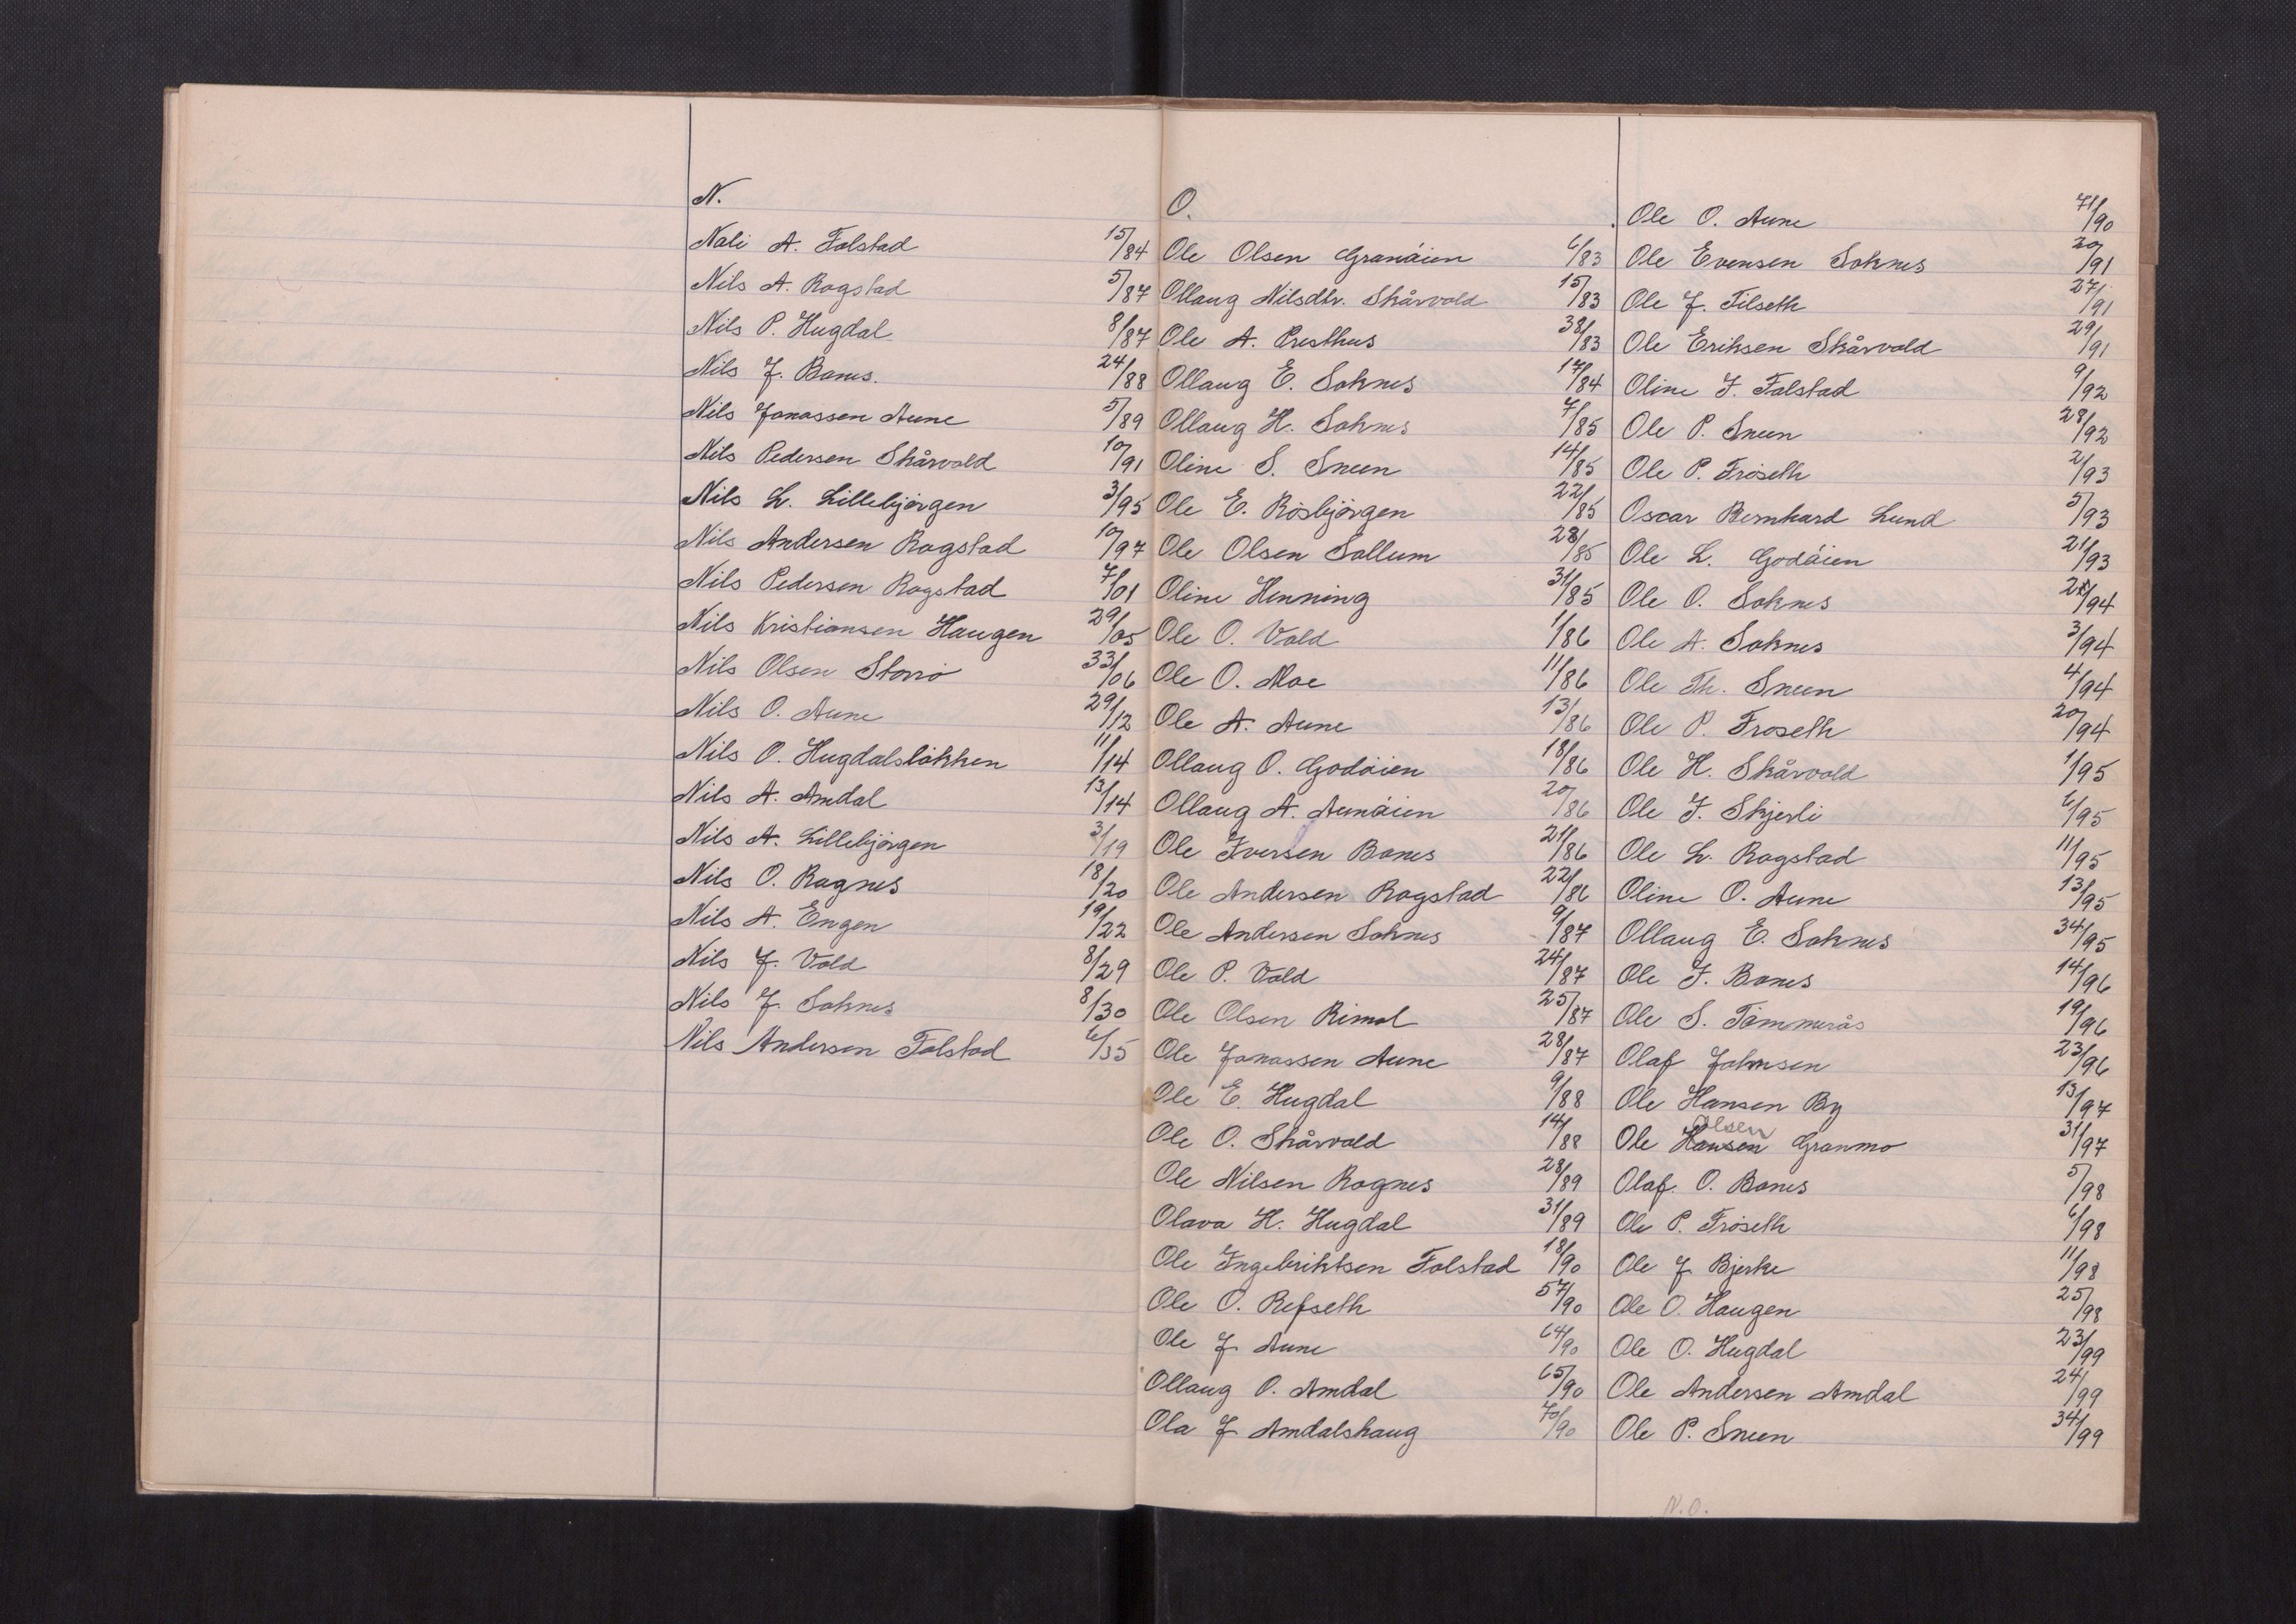 N.
Nali A. Folstad 15/84
Nils A. Rogstad 5/87
Nils P. Hugdal 8/87
Nils J. Bones. 24/88
Nils Jonassen Aune 5/89
Nils Pedersen Skårvold 10/91
Nils L. Lillebjörgen 3/95
Nils Andersen Rogstad 10/97
Nils Pedersen Rogstad 7/01
Nils Kristiansen Haugen 29/05
Nils Olsen Storrö 33/06
Nils O. Aune 29/12
Nils O. Hugdalslökken 11/14
Nils A. Amdal 13/14
Nils A. Lillebjörgen 3/19
Nils O. Rognes 18/20
Nils A. Engen 19/22
Nils J. Vold 8/29
Nils J. Soknes 8/30
Nils Andersen Folstad 6/35
O.
Ole Olsen Granöien 6/83
Ollaug Nilsdtr. Skårvold 15/83
Ole A. Presthus 38/83
Ollaug E. Soknes 17/84
Ollaug H. Soknes 7/85
Oline S. Sneen 14/85
Ole E. Rösbjörgen 22/85
Ole Olsen Sollum 28/85
Oline Henning 31/85
Ole O. Vold 1/86
Ole O. Moe 11/86
Ole A. Aune 13/86
Ollaug O. Godöien 18/86
Ollaug A. Aunöien 20/86
Ole Iversen Bones 21/86
Ole Andersen Rogstad 22/86
Ole Andersen Soknes 9/87
Ole P. Vold 24/87
Ole Olsen Rimol 25/87
Ole Jonassen Aune 28/87
Ole E. Hugdal 9/88
Ole O. Skårvold 14/88
Ole Nilsen Rognes 28/89
Olava H. Hugdal 31/89
Ole Ingebriktsen Folstad 18/90
Ole O. Refseth 57/90
Ole J. Aune 64/90
Ollaug O. Amdal 65/90
Ola J Amdalshaug 70/90
Ole O. Aune 71/90
Ole Evensen Soknes 20/91
Ole J. Tilseth 27/91
Ole Eriksen Skårvold 29/91
Oline I. Folstad 9/92
Ole P. Sneen 28/92
Ole P. Fröseth 2/93
Oscar Bernhard Lund 5/93
Ole L. Godöien 21/93
Ole O. Soknes /94
Ole A. Soknes 3/94
Ole Th. Sneen 4/94
Ole P. Froseth 20/94
Ole H. Skårvold 1/95
Ole I. Skjerli 6/95
Ole L. Rogstad 11/95
Oline O. Aune 13/95
Ollaug E. Soknes 34/95
Ole I. Bones 14/96
Ole S. Tömmerås 19/96
Olaf Johnsen 23/96
Ole Hansen By 13/97
Olsen
Ole Hansen Granmo 31/97
Olaf. O. Bones 5/98
Ole P. Fröseth 6/98
Ole J. Bjerke 11/98
Ole O. Haugen 25/98
Ole O. Hugdal 23/99
Ole Andersen Amdal 24/99
Ole P. Sneen 34/99
N.O.